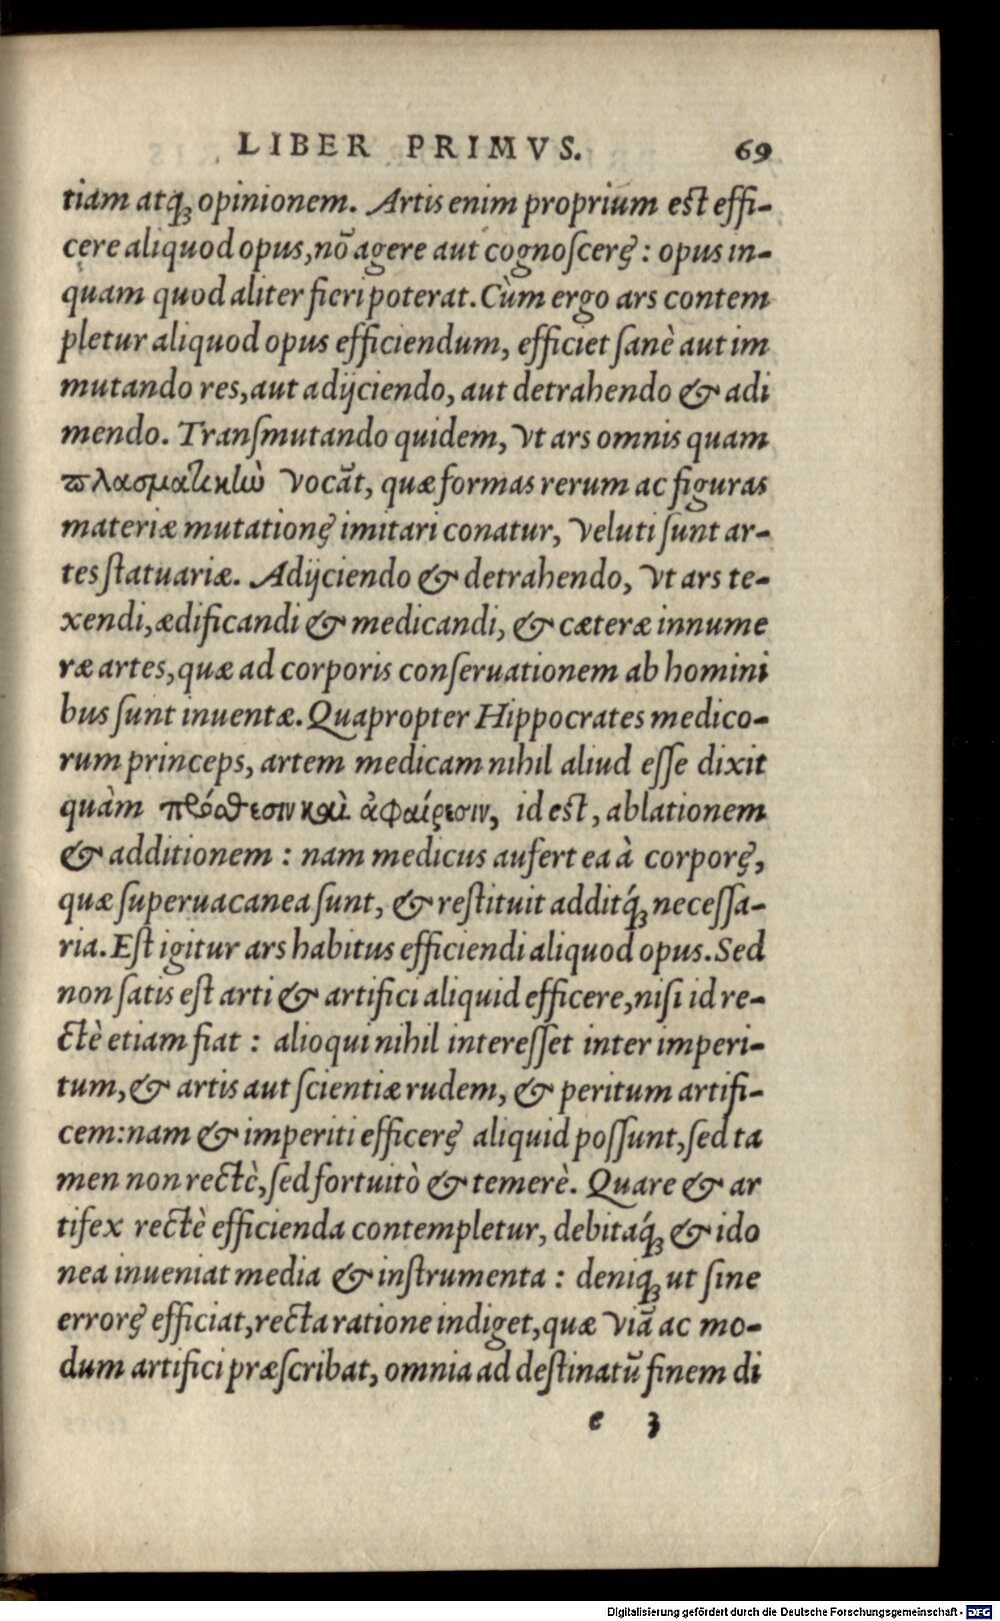 LIBER PRIMVS. 69
tiam atq́; opinionem. Artis enim proprium est effi-
cere aliquod opus, nō agere aut cognoſcere: opus in-
quam quod aliter fieri poterat. Cùm ergo ars contem
pletur aliquod opus efficiendum, efficiet ſanè aut im
mutando res, aut adijciendo, aut detrahendo & adi
mendo. Tranſmutando quidem, vt ars omnis quam
πλασματικὴν vocāt, quæ formas rerum ac figuras
materiæ mutatione imitari conatur, veluti ſunt ar-
tes ſtatuariæ. Adijciendo & detrahendo, vt ars te-
xendi, ædificandi & medicandi, & cæteræ innume
ræ artes, quæ ad corporis conſeruationem ab homini
bus ſunt inuentæ. Quapropter Hippocrates medico-
rum princeps, artem medicam nihil aliud eſſe dixit
quàm πρόσθεσιν καὶ ἀφαίρεσιν, id est, ablationem
& additionem: nam medicus aufert ea à corpore,
quæ ſuperuacanea ſunt, & reſtituit additq́; neceſſa-
ria. Eſt igitur ars habitus efficiendi aliquod opus. Sed
non ſatis eſt arti & artifici aliquid efficere, niſi id re-
ctè etiam fiat: alioqui nihil intereſſet inter imperi-
tum, & artis aut ſcientiæ rudem, & peritum artifi-
cem: nam & imperiti efficere aliquid poſſunt, ſed ta
men non rectè, ſed fortuitò & temerè. Quare & ar
tifex rectè efficienda contempletur, debitaq́; & ido
nea inueniat media & inſtrumenta: deniq; ut ſine
errore efficiat, recta ratione indiget, quæ viā ac mo-
dum artifici præſcribat, omnia ad deſtinatū finem di
e 3
Digitalisierung gefördert durch die Deutsche Forschungsgemeinschaft - DFG